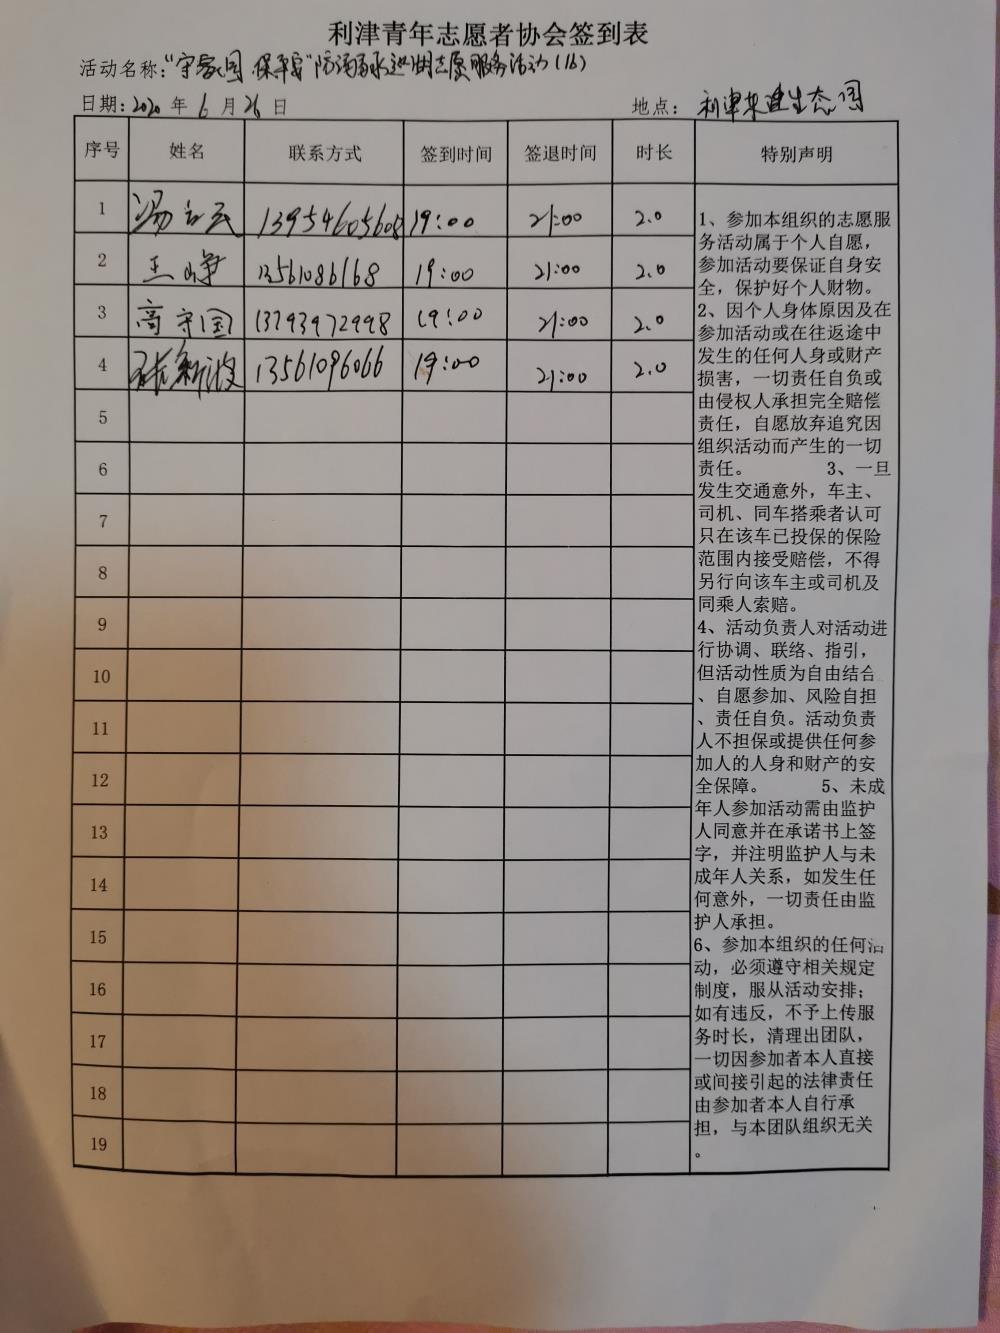 利津青年志愿者协会签到表
活动名称："守家园 保平安"防溺水巡湖志愿服务活动(16)
日期：2020年6月26日 地点：利津东津生态园
序号 姓名 联系方式 签到时间 签退时间 时长 特别声明
1 13954605608 19:00 21:00 2.0
2 王峥 13561086168 19:00 21:00 2.0
3 高守国 13793972998 19:00 21:00 2.0
4 张新波 13561096066 19:00 21:00 2.0
5
6
7
8
9
10
11
12
13
14
15
16
17
18
19
1、参加本组织的志愿服
务活动属于个人自愿，
参加活动要保证自身安
全，保护好个人财物。
2、因个人身体原因及在
参加活动或在往返途中
发生的任何人身或财产
损害，一切责任自负或
由侵权人承担完全赔偿
责任，自愿放弃追究因
组织活动而产生的一切
责任。 3、一旦
发生交通意外，车主、
司机、同车搭乘者认可
只在该车已投保的保险
范围内接受赔偿，不得
另行向该车主或司机及
同乘人索赔。
4、活动负责人对活动进
行协调、联络、指引，
但活动性质为自由结合
、自愿参加、风险自担
、责任自负。活动负责
人不担保或提供任何参
加人的人身和财产的安
全保障。 5、未成
年人参加活动需由监护
人同意并在承诺书上签
字，并注明监护人与未
成年人关系，如发生任
何意外，一切责任由监
护人承担。
6、参加本组织的任何活
动，必须遵守相关规定
制度，服从活动安排；
如有违反，不予上传服
务时长，清理出团队，
一切因参加者本人直接
或间接引起的法律责任
由参加者本人自行承
担，与本团队组织无关
。